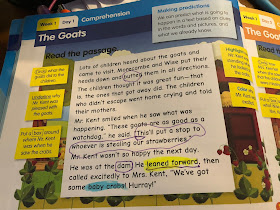 WEEK 1 DAY 1
Comprehension
Making predictions
We can predict what is going to
happen in a text based on clues
in the words and pictures, and
what we already know.
The Goats
Read the passage
Lots of children heard about the goats and
came to visit. Montezcambe and Wise put their
heads down and butted them in all directions.
The children thought it was great fun—that
is, the ones that got away did. The children
who didn't escape went home crying and told
their mothers.
Mr. Kent smiled when he saw what was
happening. "These goats are as good as a
watchdog," he said. "This'll put a stop to
whoever is stealing our strawberries."
Mr. Kent wasn't so happy the next day.
He was at the dam. He leaned forward, then
called excitedly to Mrs. Kent, "We've got
some baby crabs! Hurray!"
Circle what the
goats did to the
children.
Underline why
Mr. Kent was
pleased with
the goats.
Put a box around
where Mr. Kent
was when
he saw the crabs.